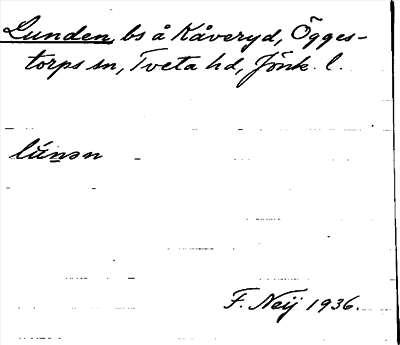 Lunden, bs å Kåveryd, Ögges-
torps sn, Tveta hd, Jönk. l.
lúnən
F. Neij 1936.